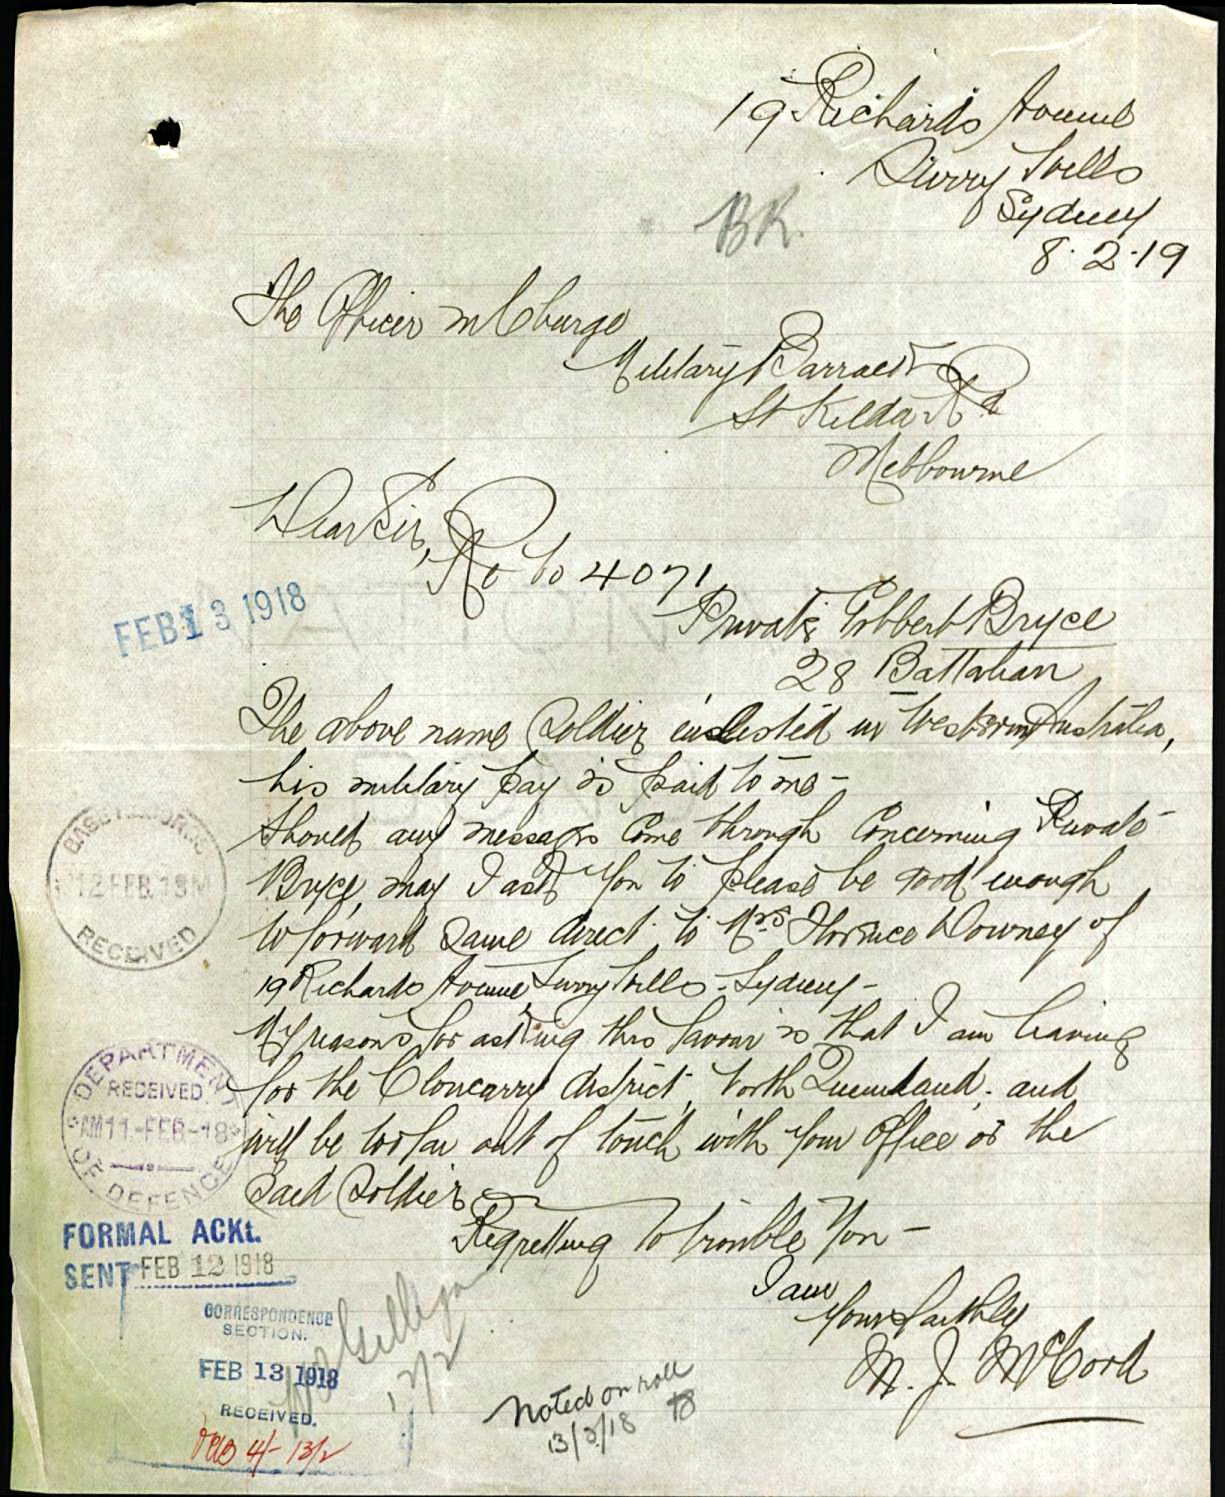 19 Richards Avenue
Surry Hills
Sydney
8.2.19
BR.
The Officer in Charge
Military Barracks
St Kilda Rd
Melbourne
Dear Sir,
Re to 4071
Private Robbert Bryce
28 Battalian
FEB 13 1918
The above name Soldier enlisted in Western Australia,
his military pay is paid to me -
Should any message come through concerning Private
Bryce, may I ask you to please be good enough
to forward same direct to Mrs Florence Downey of
19 Richards Avenue, Surry Hills - Sydney -
My reasons for asking this favour is that I am leaving
for the Cloncurry district, North Queensland, and
will be too far out of touch with your office or the
Said Soldier
Regretting to trouble you -
I am
Yours faithly
M. J. McCord
12 FEB. 18
RECEIVED
DEPARTMENT
RECEIVED
AM 11-FEB-18
OF DEFENCE
FORMAL ACKt.
SENT FEB 12 1918
CORRESPONDENCE
SECTION.
FEB 13 1918
RECEIVED.
4/- 13/2
Gillegan
12/2
Noted on roll
13/3/18